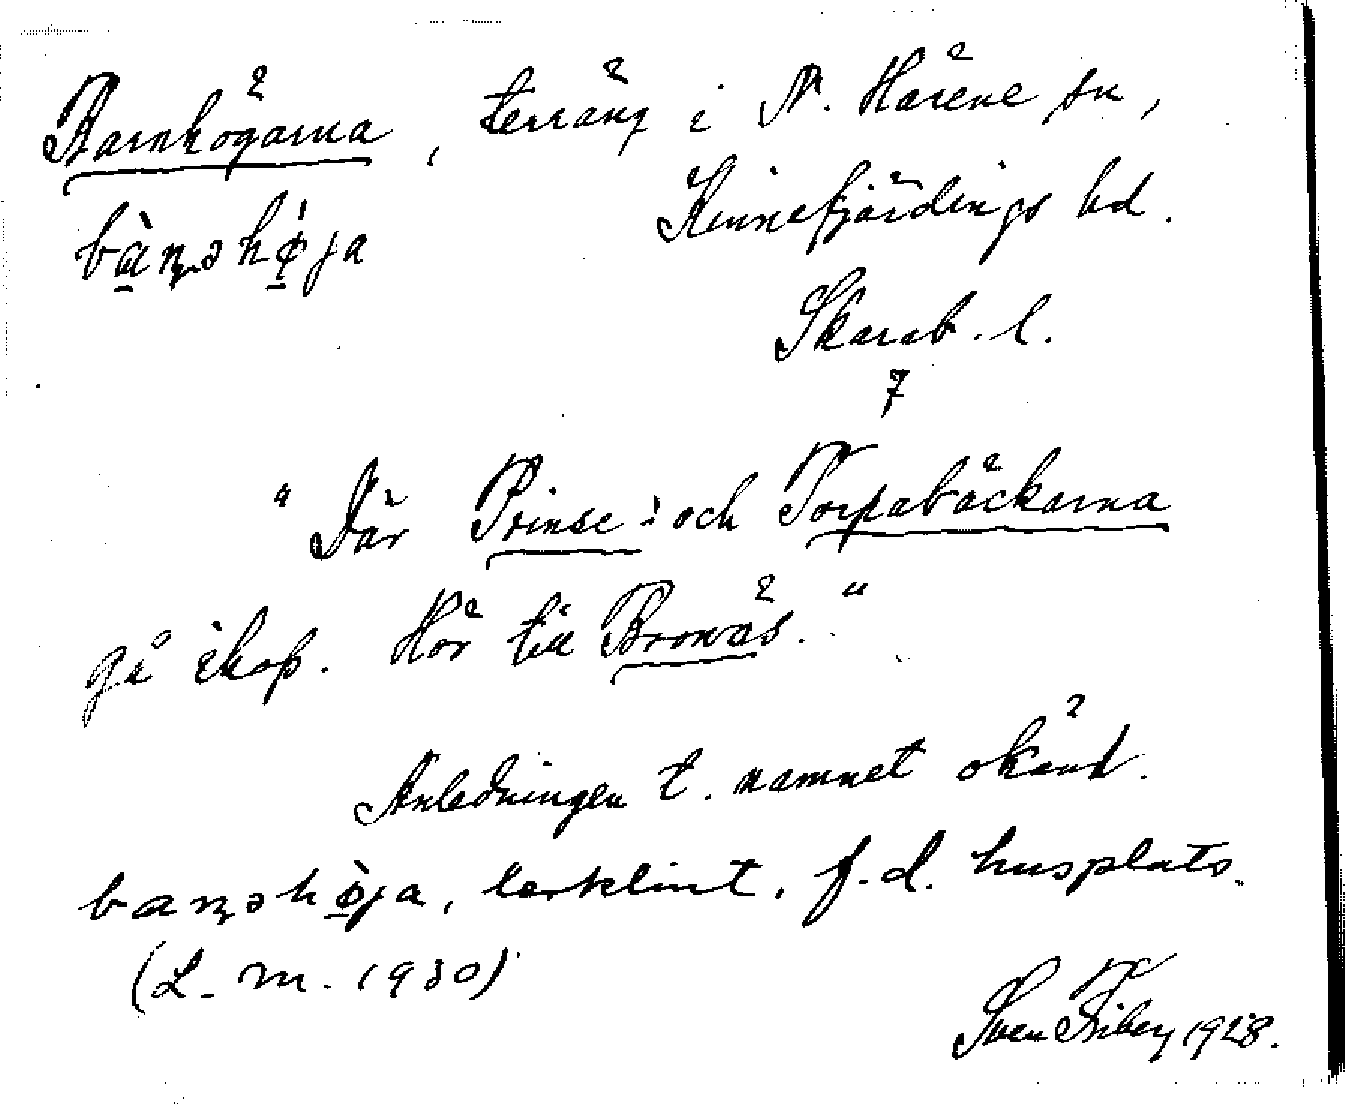 Barnhögarna, terräng i N. Härene sn,
Kinnefjärdings hd.
bàn̥əhǿja
Skarab. l.
7
"Där Prinse- och Torpabäckarna
gå ihop. Hör till Bronäs."
Anledningen t. namnet okänd.
ban̥əhø̀ja, lerklint, f.d. husplats.
(L. m. 1930)
Sven Friberg 1928.